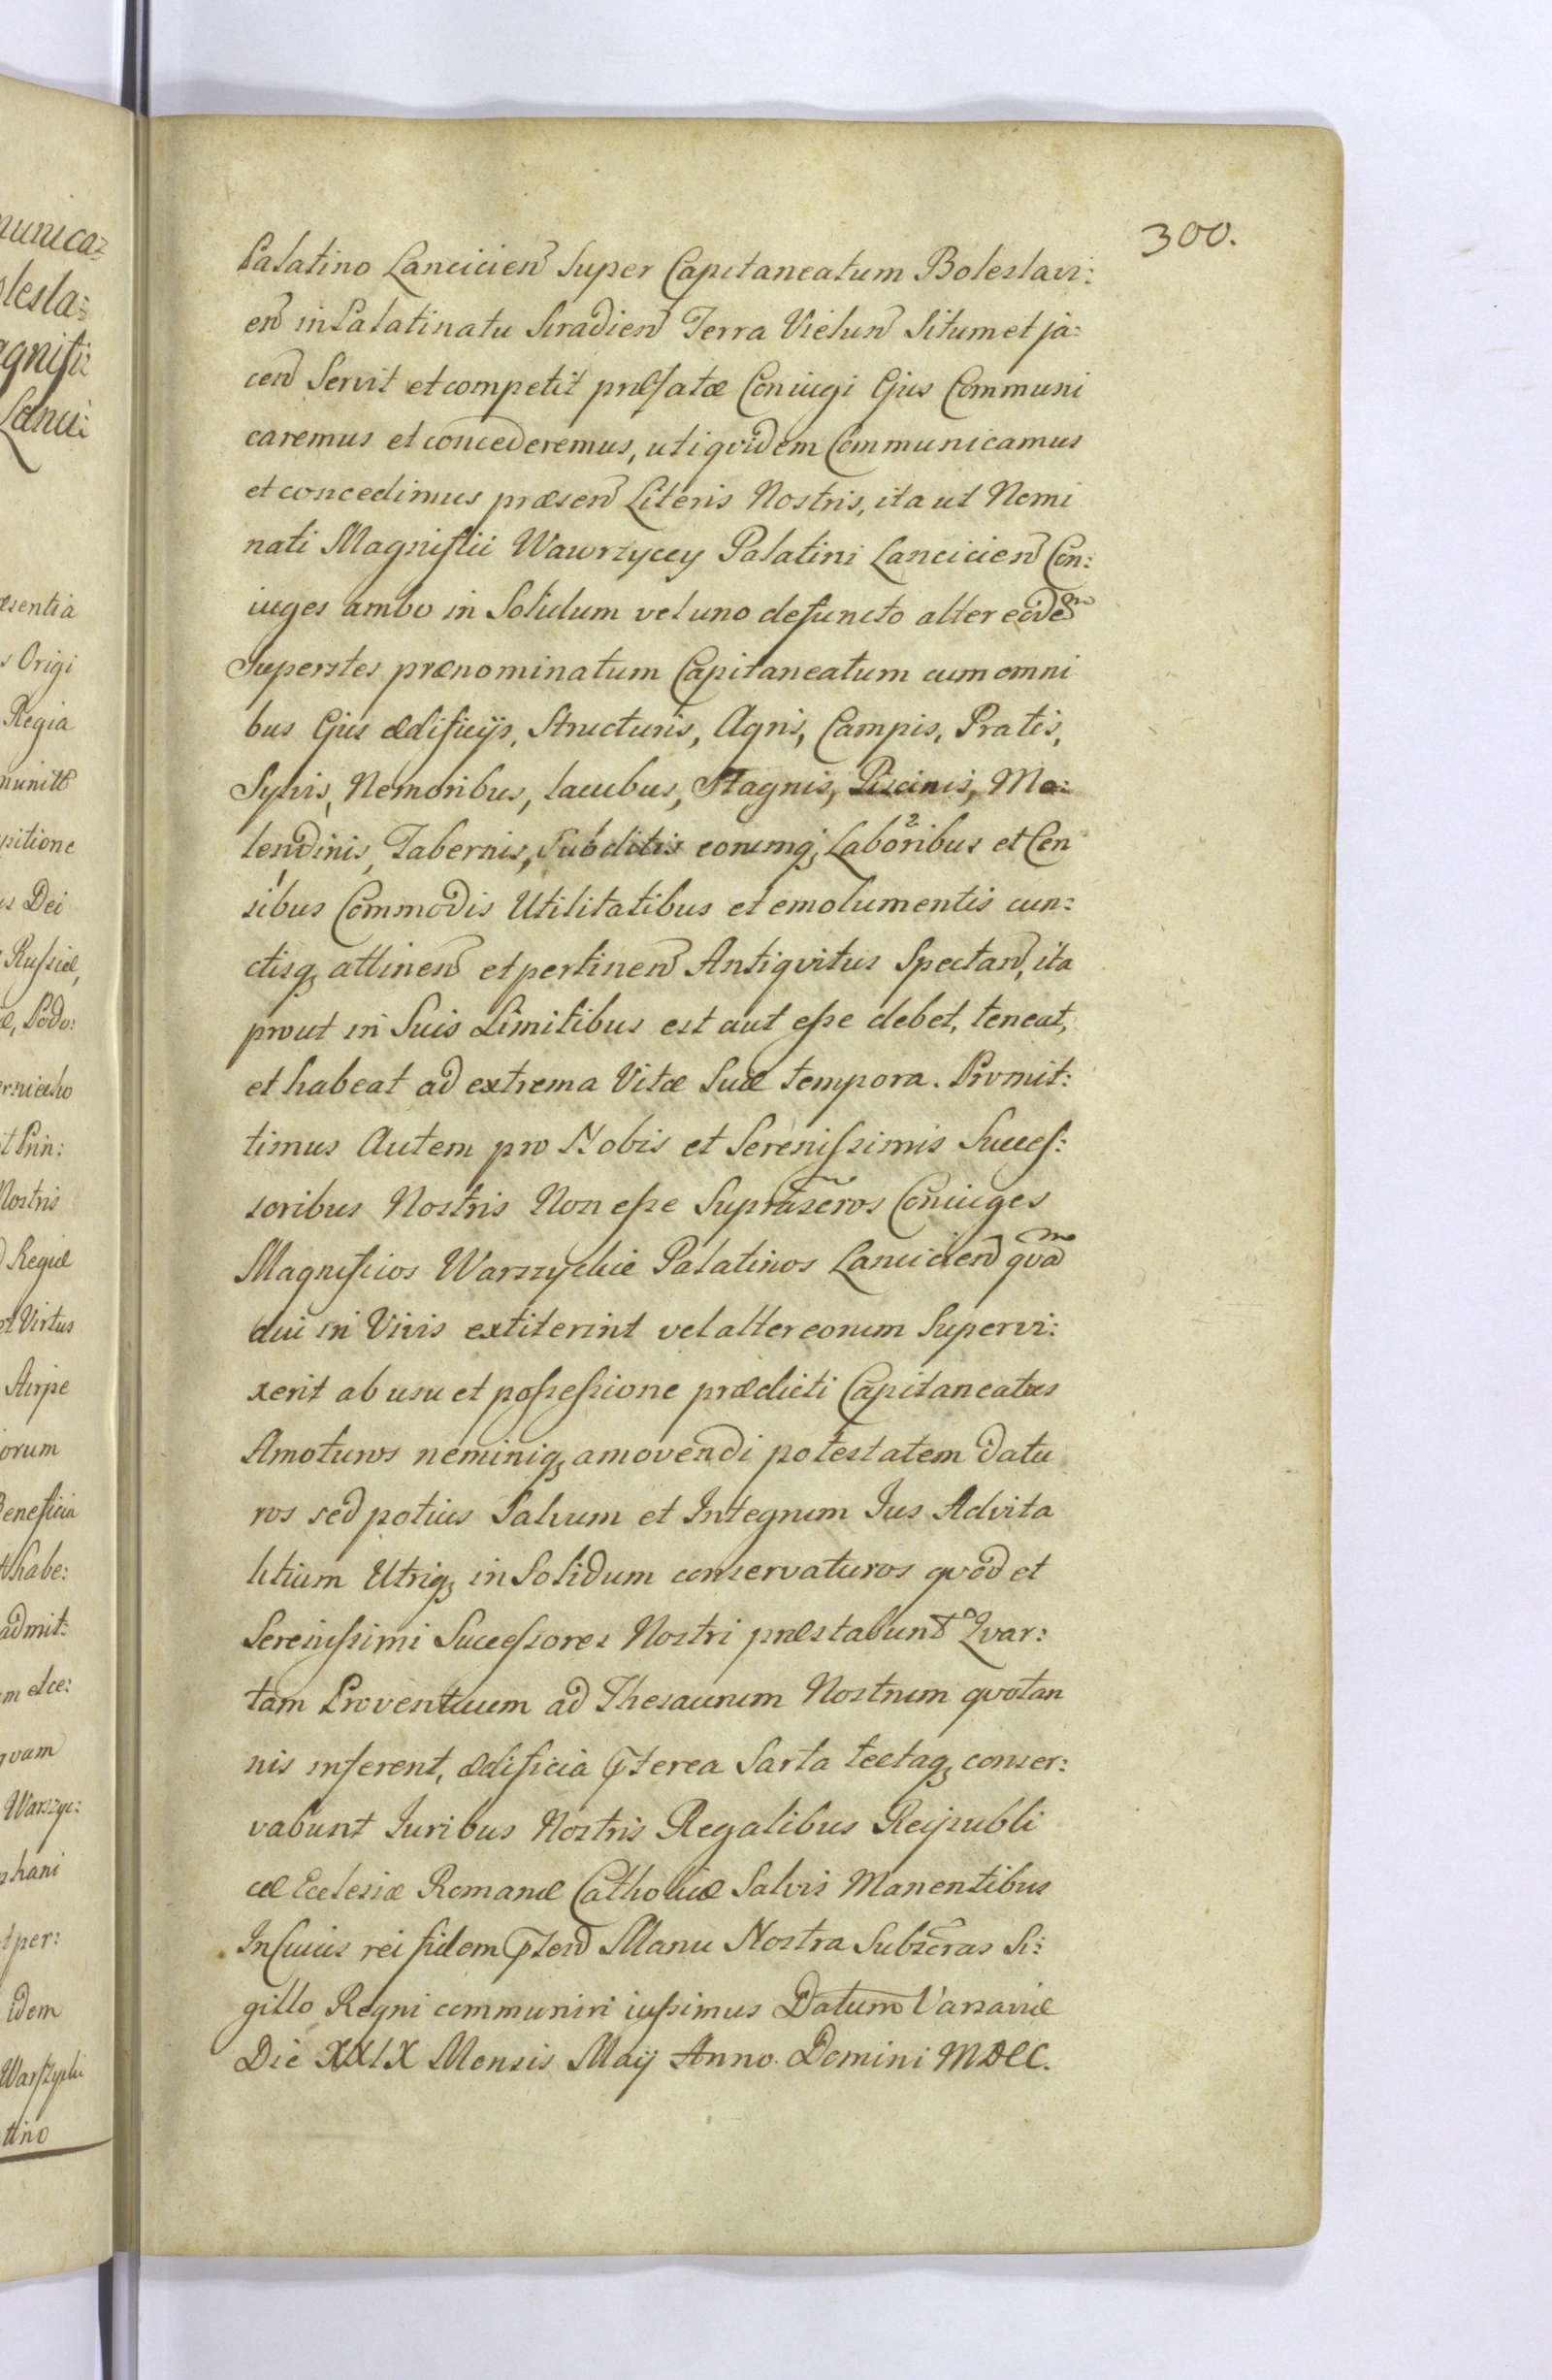 300.
Palatino Lancicien̄ Super Capitaneatum Boleslavi:
en̄ in Palatinatu Siradien̄ Terra Vielun̄ Situm et ja:
cen̄ Servit et competit præfatæ Coniugi Ejus Communi
caremus et concederemus, uti qvidem Communicamus
et concedimus præsen̄ Literis Nostris, ita ut Nomi
nati Magnificii Wawrzycey Palatini Lancicien̄ Con:
iuges ambo in Solidum vel uno defuncto alter eōdēm
Superstes prænominatum Capitaneatum cum omni
bus Ejus ædificijs, Structuris, Agris, Campis, Pratis,
Sylvis, Nemoribus, lacubus, Stagnis, Piscinis, Mo:
lendinis, Tabernis, Subditis eorumq; Laboribus et Cen
sibus Commodis Utilitatibus et emolumentis cun:
ctisq; attinen̄ et pertinen̄ Antiqvitus Spectan̄, ita
prout in Suis Limitibus est aut eſse debet, teneat,
et habeat ad extrema Vitæ Suæ tempora. Promit:
timus Autem pro Nobis et Sereniſsimis Succeſ:
soribus Nostris Non eſse Suprascr̄os Coniuges
Magnificos Warszyckie Palatinos Lancicien̄ qvād
dui in Vivis extiterint vel alter eorum Supervi:
xerit ab usu et poſseſsione prædicti Capitaneatus
Amoturos neminiq; amovendi potestatem datu
ros sed potius Salvum et Integrum Ius Advita
litium Utriq; in Solidum conservaturos qvod et
Sereniſsimi Succeſsores Nostri præstabunt Qvar:
tam Proventuum ad Thesaurum Nostrum qvotan
nis inferent, ædificia p̄terea Sarta tectaq; conser:
vabunt Iuribus Nostris Regalibus Reipubli
cæ Ecclesiæ Romanæ Catholicæ Salvis Manentibus
In cuius rei fidem p̄sen̄ Manu Nostra Subscr̄as Si:
gillo Regni communiri iuſsimus Datum Varsaviæ
Die XXIX Mensis Maij Anno Domini MDCC.